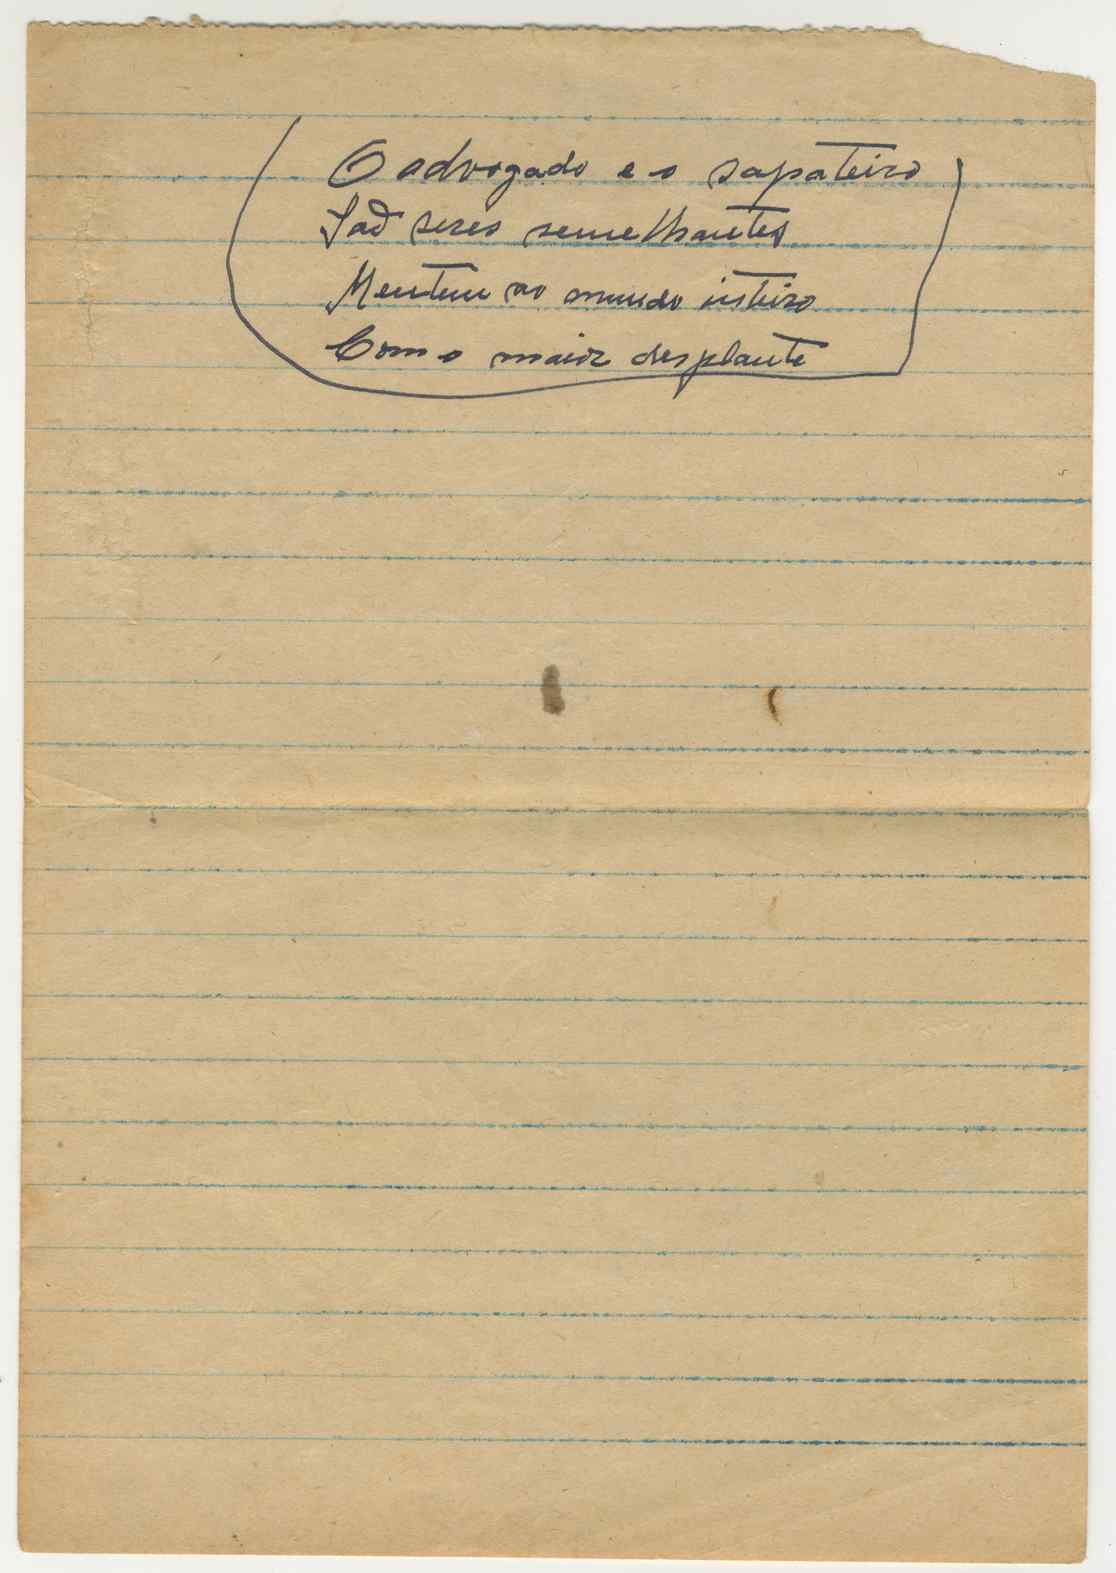 O advogado e o sapateiro
São seres semelhantes
Mentem ao mundo inteiro
Com o maior desplante